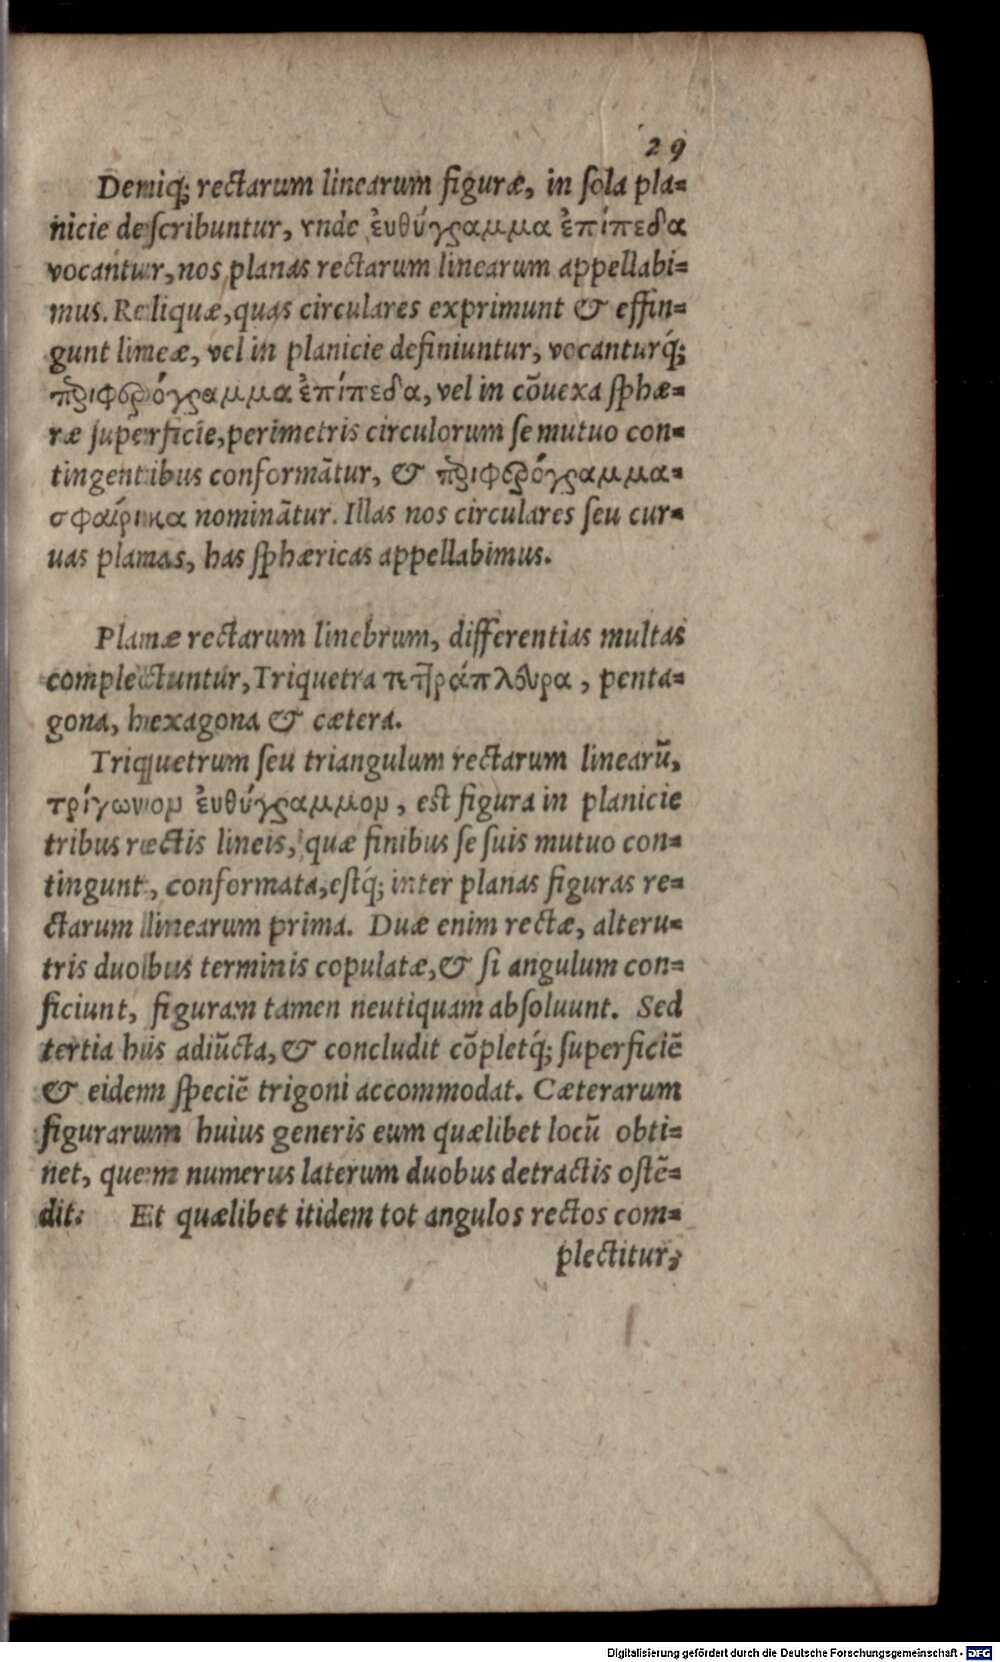 29
Deniq́; rectarum linearum figuræ, in ſola pla=
nicie deſcribuntur, vnde ἐυθύγραμμα ἐπίπεδα
vocantur, nos planas rectarum linearum appellabi=
mus. Reliquæ, quas circulares exprimunt & effin=
gunt lineæ, vel in planicie definiuntur, vocanturq́;
περιφερόγραμμα ἐπίπεδα, vel in cõuexa ſphæ=
ræ ſuperficie, perimetris circulorum ſe mutuo con=
tingentibus conformãtur, & περιφερόγραμμα=
σφαίρικα nominãtur. Illas nos circulares ſeu cur=
uas planas, has ſphæricas appellabimus.
Planæ rectarum linebrum, differentias multas
complectuntur, Triquetra τετράπλδυρα, penta=
gona, hexagona & cætera.
Triquetrum ſeu triangulum rectarum linearũ,
τρίγωνομ ἐυθύγραμμομ, eſt figura in planicie
tribus rectis lineis, quæ finibus ſe ſuis mutuo con=
tingunt, conformata, eſtq́; inter planas figuras re=
ctarum linearum prima. Duæ enim rectæ, alteru=
tris duobus terminis copulatæ, & ſi angulum con=
ficiunt, figuram tamen neutiquam abſoluunt. Sed
tertia his adiũcta, & concludit cõpletq́; ſuperficiẽ
& eidem ſpeciẽ trigoni accommodat. Cæterarum
figurarum huius generis eum quælibet locũ obti=
net, quem numerus laterum duobus detractis oſtẽ=
dit: Et quælibet itidem tot angulos rectos com=
plectitur,
Digitalisierung gefördert durch die Deutsche Forschungsgemeinschaft - DFG